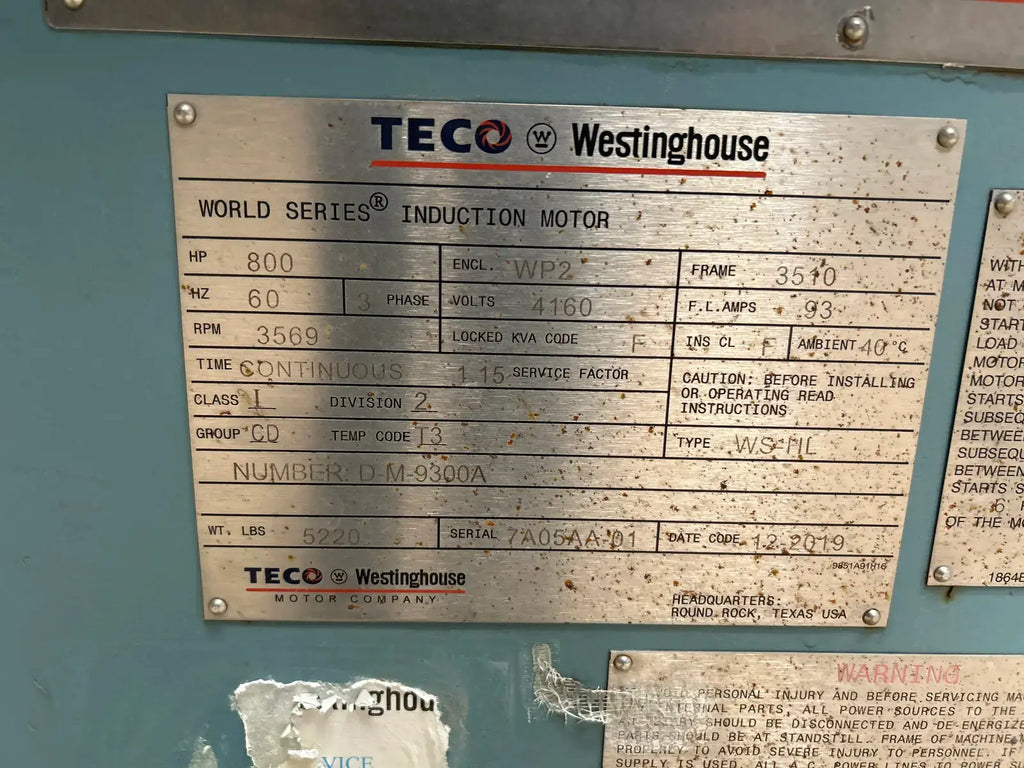 TECO W Westinghouse
WORLD SERIES® INDUCTION MOTOR
HP 800 ENCL. WP2 FRAME 3510
HZ 60 3 PHASE VOLTS 4160 F.L.AMPS 93
RPM 3569 LOCKED KVA CODE F INS CL F AMBIENT 40 °C
TIME CONTINUOUS 1.15 SERVICE FACTOR
CAUTION: BEFORE INSTALLING
OR OPERATING READ
INSTRUCTIONS
CLASS I DIVISION 2
GROUP CD TEMP CODE T3 TYPE WS-HL
NUMBER: D-M-9300A
WT. LBS 5220 SERIAL 7A05AA-01 DATE CODE 12-2019
9851A91H16
TECO W Westinghouse
MOTOR COMPANY
HEADQUARTERS:
ROUND ROCK, TEXAS USA
WITH
AT M
NOT
START
LOAD
MOTOR
MOTOR
STARTS
SUBSEQ
BETWEE
SUBSEQU
BETWEEN
STARTS S
6
OF THE MO
1864
nghou
VICE
WARNING
PERSONAL INJURY AND BEFORE SERVICING MA
PARTS, ALL POWER SOURCES TO THE
SHOULD BE DISCONNECTED AND DE-ENERGIZE
PARTS SHOULD BE AT STANDSTILL. FRAME OF MACHINE
PROPERLY TO AVOID SEVERE INJURY TO PERSONNEL. IF
SUPPLY IS USED, ALL A-C POWER LINES TO POWER SU